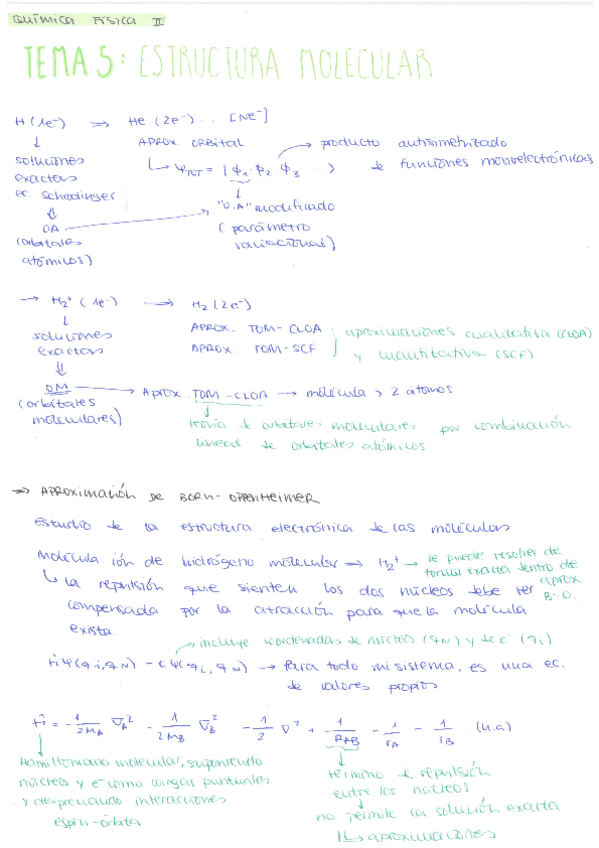 QUÍMICA FÍSICA II
TEMA 5: ESTRUCTURA MOLECULAR
H (1e⁻) ⇒ He (2e⁻) .. [Ne⁻]
↓ APROX. ORBITAL → producto antisimetrizado
soluciones ↳ Ψ_TOT = | ϕ₁ ϕ₂ ϕ₃ ... > de funciones monoelectrónicas
exactas ↓
ec. schrodinger "O.A" modificado
⇓ (parámetro
OA → variacional)
(orbitales
atómicos)
→ H₂⁺ (1e⁻) → H₂ (2e⁻)
↓ APROX. TOM-CLOA aproximaciones cualitativa (CLOA)
soluciones APROX. TOM-SCF y cuantitativa (SCF)
exactas
⇓
OM → Aprox. TOM-CLOA → molécula > 2 átomos
(orbitales ↓
moleculares) teoría de orbitales moleculares por combinación
lineal de orbitales atómicos
→ APROXIMACIÓN DE BORN-OPPENHEIMER
Estudio de la estructura electrónica de las moléculas
Molécula ión de hidrógeno molecular → H₂⁺ → se puede resolver de
forma exacta dentro de
aprox
B-O.
↳ la repulsión que sienten los dos núcleos debe ser
compensada por la atracción para que la molécula
exista
→ incluye coordenadas de núcleos (q_N) y de e⁻ (q_i)
Ĥψ(q_i, q_N) = Eψ(q_i, q_N) → Para todo mi sistema, es una ec.
de valores propios
Ĥ = - 1/2M_A ∇_A² - 1/2M_B ∇_B² - 1/2 ∇² + 1/R_AB - 1/r_A - 1/r_B (u.a)
Hamiltoniano molecular, suponiendo
núcleos y e⁻ como cargas puntuales
y despreciando interacciones
espín-órbita
término de repulsión
entre los núcleos
no permite la solución exacta
↳ aproximaciones